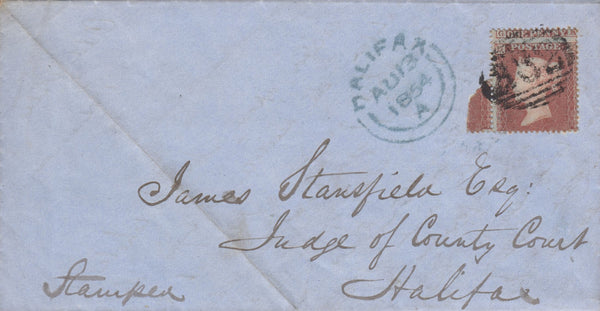 POSTAGE
HALIFAX
AU 13
1854
A
James Stansfield Esq:
Judge of County Court
Halifax
Stamped